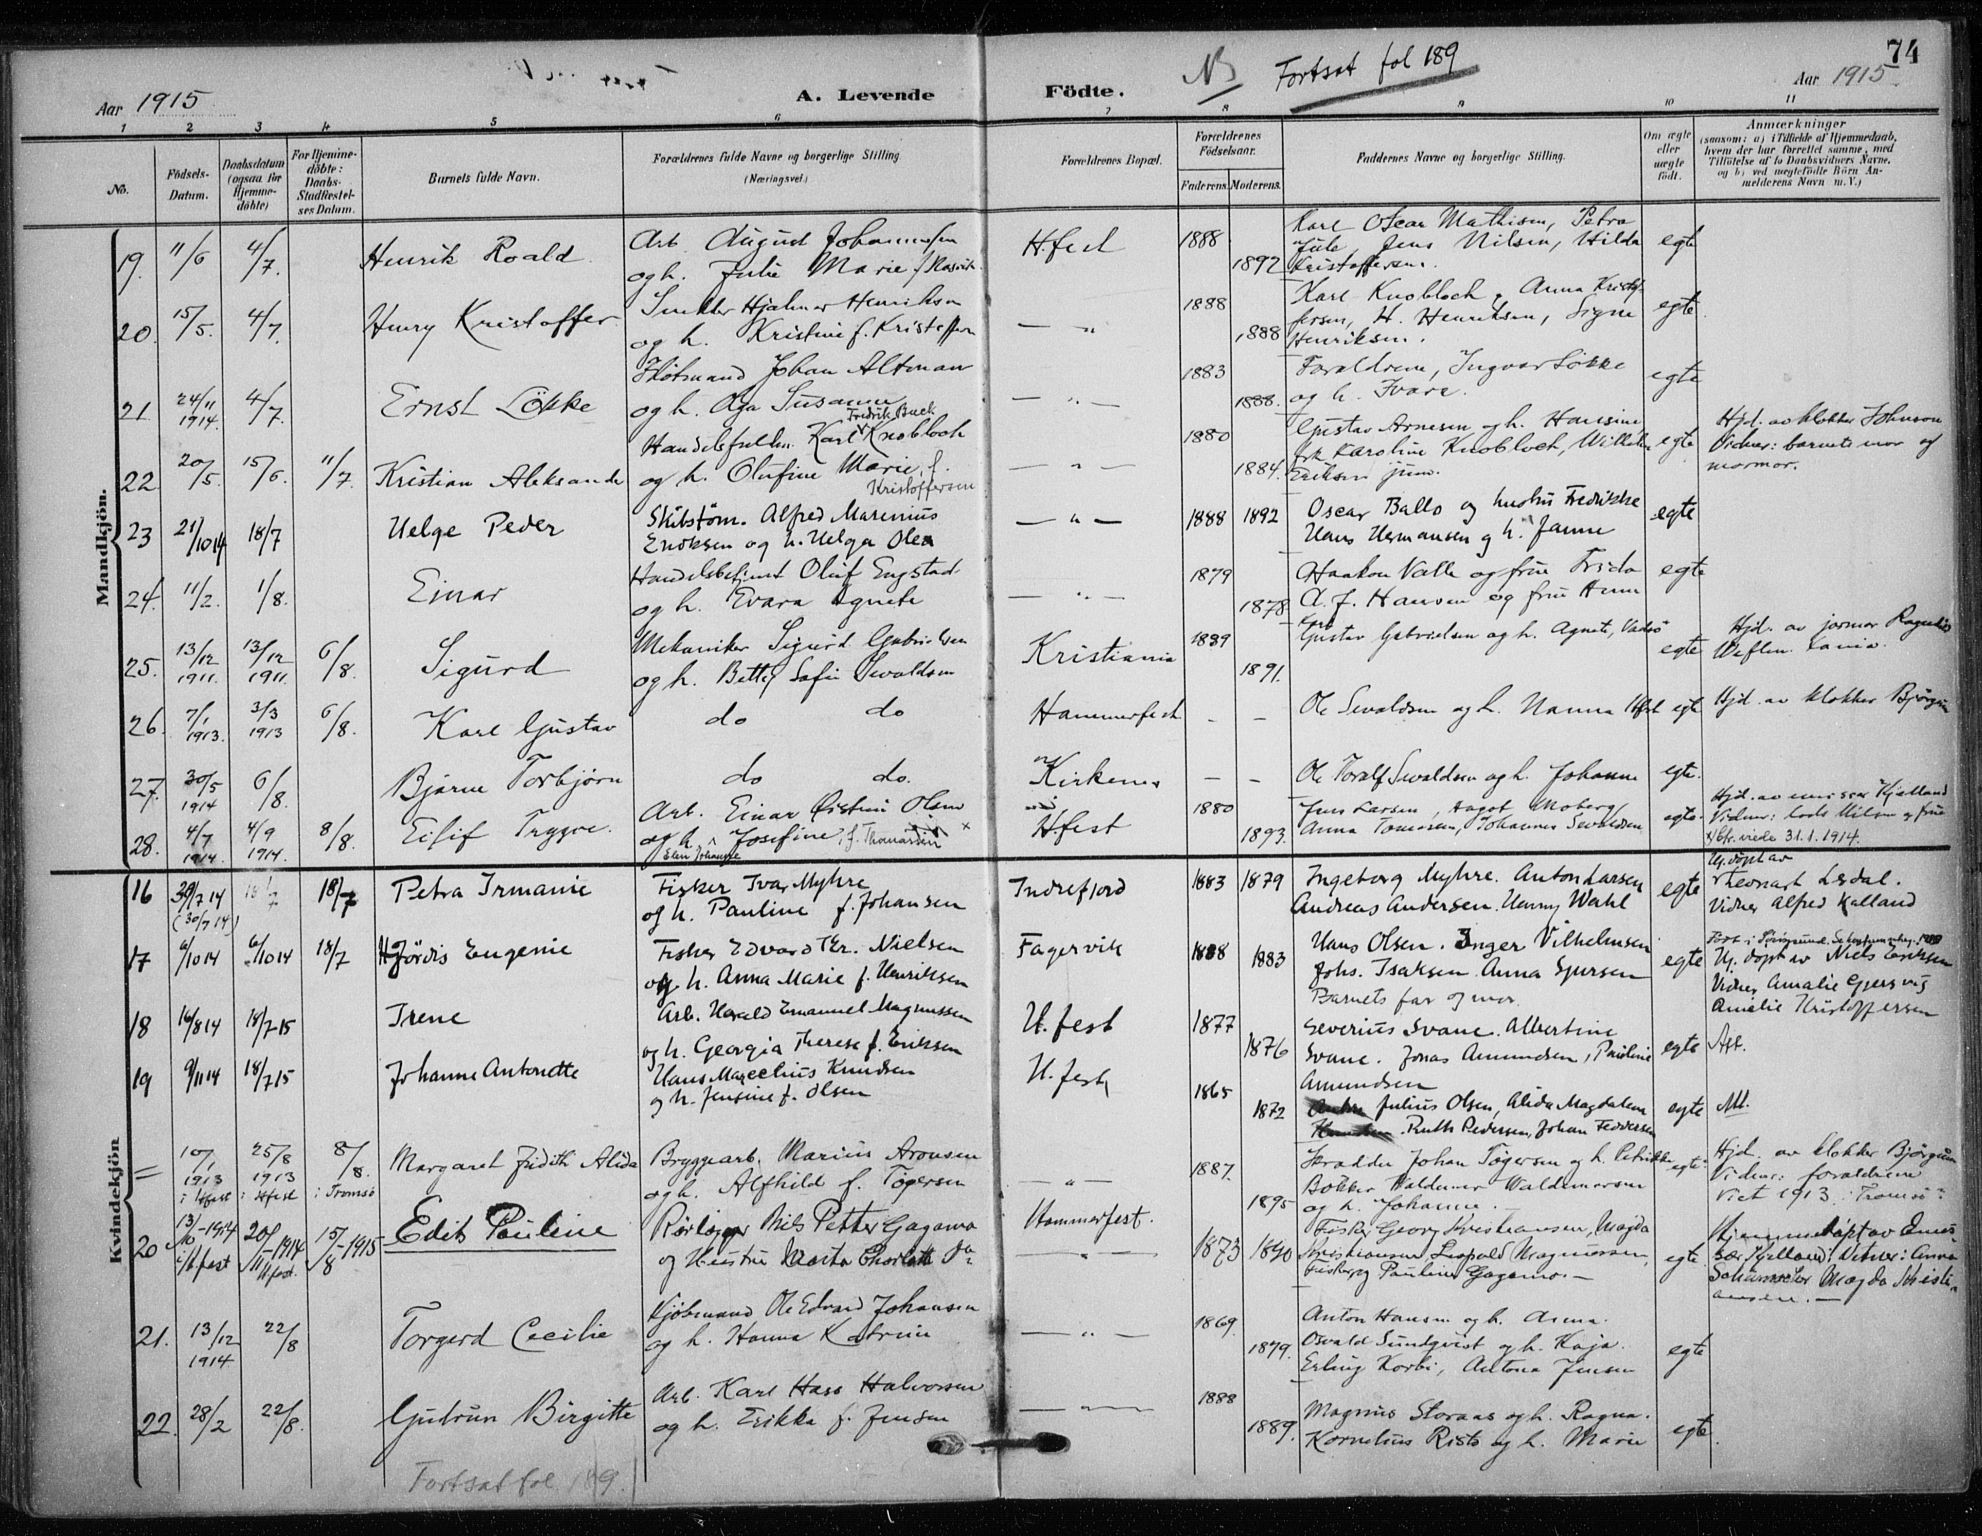 74
NB Fortsat fol 189
Aar 1915
A. Levende Födte.
Aar 1915
1 2 3 4 5 6 7 8 9 10 11
No.
Födsels-Datum.
Daabsdatum (ogsaa for Hjemmedöbte)
For Hjemmedöbte: Daabs-Stadfæstelses Datum.
Barnets fulde Navn.
Forældrenes fulde Navne og borgerlige Stilling (Næringsvei.)
Forældrenes Bopæl.
Forældrenes Födselsaar.
Faderens. Moderens.
Faddernes Navne og borgerlige Stilling.
Om ægte eller uægte födt.
Anmærkninger
(saasom: a) i Tilfælde af Hjemmedaab, hvem der har forrettet samme, med Tilföielse af to Daabsvidners Navne, og b) ved uægtefödte Börn Anmelderens Navn m. V.)
Mandkjön.
19. 11/6 4/7. Henrik Roald Arb. August Johannessen og h. Julie Marie H.fest 1888 1892 Karl Oscar Mathisen, Petra Jule, Jens Nilsen, Hilda Kristoffersen. egte
20. 15/5. 4/7. Henry Kristoffer Hjalmar Henriksen og h. Kristine f. Kristoffersen — „ 1888 1888 Karl Knobloch, Anna Kristoffersen, H. Henriksen, Signe Henriksen. egte
21. 24/11 1914. 4/7. Ernst Lökke Johan Altman og h. Aga Susanne — „ — 1883 1888. Forældrene, Ingvar Løkke og h. Ivara. egte
22 20/5. 15/6. 11/7. Kristian Aleksander Handelsfuldm. Karl Fredrik Buck Knobloch og h. Olufine Marie, f. Kristoffersen — „ — 1880 1884. Gustav Arnesen og h. Hansine frk Karoline Knobloch, Wilhelm Eriksen jun. egte Hjd. av klokker Johnson Vidner: barnets mor og mormor.
23 21/10 14 18/7 Helge Peder Skibstøm. Alfred Marenius Eriksen og h. Helga Olea — „ — 1888 1892 Oscar Ballo og hustru Fredrikke Hans Hermansen og h. Janne egte
24. 11/2. 1/8. Einar Handelsbetjent Oluf Engstad og h. Evara Agnete — „ — 1879 1878. Haakon Valle og frue Frida A. J. Hansen og frue Anna egte
25. 13/12 1911. 13/12 1911. 6/8. Sigurd Mekaniker Sigurd Gabrielsen og h. Betty Sofie Sivaldsen Kristiania 1889 1891. Gustav Gabrielsen og h. Agnete, Vadsø egte Hjd. av jormor
26. 7/1 1913. 3/3 1913 6/8. Karl Gustav do do Hammerfest – – Ole Sivaldsen og h. Nanna Hfest egte Hjd. av klokker Bjørgum
27. 30/5 1914 6/8. Bjarne Torbjørn do do. Kirkenes – – Ole Toralf Sivaldsen og h. Johanne egte.
28. 4/7 1914. 4/9 1914. 8/8. Eilif Trygve. Arb. Einar Øistein Olsen og h. Elen Johanne Josefine, f. Thomassen × Hfest 1880 1893. Jens Larsen, Aagot Moberg, Anna Tomasen, Johannes Sivaldsen egte. Hjd. av emissær Kjelland Vidner: Nilsen og frue ×) viede 31.1.1914.
Kvindekjön
16 30/7 14 (30/7 14) 18/7 18/7 Petra Irmanie Fisker Ivar Myhre og h. Pauline f. Johansen Indrefjord 1883 1879 Ingeborg Myhre. Anton Larsen Andreas Andersen. Hanny Wahl egte Hj. døpt av Leonart Lerdal. Vidner Alfred Kalland
17 6/10 14 6/10 14 18/7 Hjördis Eugenie Fisker Edvard Chr. Nielsen og h. Anna Marie f. Henriksen Fagervik 1888 1883 Hans Olsen. Inger Vilhelmsen Johs. Isaksen Anna Sjursen Barnets far og mor. egte Hj. døpt av Niels Eriksen Vidner Amalie Gjersvig Amelie Kristoffersen
18 16/8 14 18/7 15 Irene Arb. Harald Emanuel Magnussen og h. Georgia Therese f. Eriksen H.fest 1877 1876 Severius Svane. Albertine Svane. Jonas Amundsen, Pauline Amundsen egte Att.
19 9/11 14 18/7 15 Johanne Antonette Hans Marcelius Knudsen og h. Jensine f. Olsen H.fest 1865 1872 Julius Olsen, Alida Magdalena Ruth Pedersen, Johan Feddersen egte Att.
= 10/1 1913 i Hfest 25/8 1913 i Hfest 8/8. i Tromsø Margaret Judith Alida Bryggearb. Marius Aronsen og h. Alfhild f. Tøgersen — „ — 1887. 1895 Skrædder Johan Tøgersen og h. Petrikke Bøkker Valdemar Waldemarsen og h. Johanne. egte Hjd. av klokker Bjørgum Vidner: forældrene Viet 1913 i Tromsø.
20 13/10-1914 i/Hfest 20/11-1914 i/Hfest. 15/8-1915 Edit Pauline Rørlegger Nils Petter Gagama og Hustru Marta Charlotte Hammerfest. — „ — 1873 1890 Fisker Georg Kristiansen, Magda Kristiansen, Leopold Magnussen, Pauline Gagama.— egte Hjemmedøpt av Emissær Kjelland. Vitner: Anna og Magda Kristiansen.—
21. 13/12 1914 22/8 Torgerd Cecilie Kjøbmand Ole Edvard Johansen og h. Hanna Katrine — „ — 1869. 1879. Anton Hansen og h. Anna. Osvald Sundqvist og h. Kaja. Erling Korbi, Antona Jensen egte
22. 28/2 22/8. Gudrun Birgitte Arb. Karl Hass Halvorsen og h. Erikka f. Jensen — „ — 1888 1889. Magnus Storaas og h. Ragna. Kornelius Risto og h. Marie egte
Fortsat fol 189.